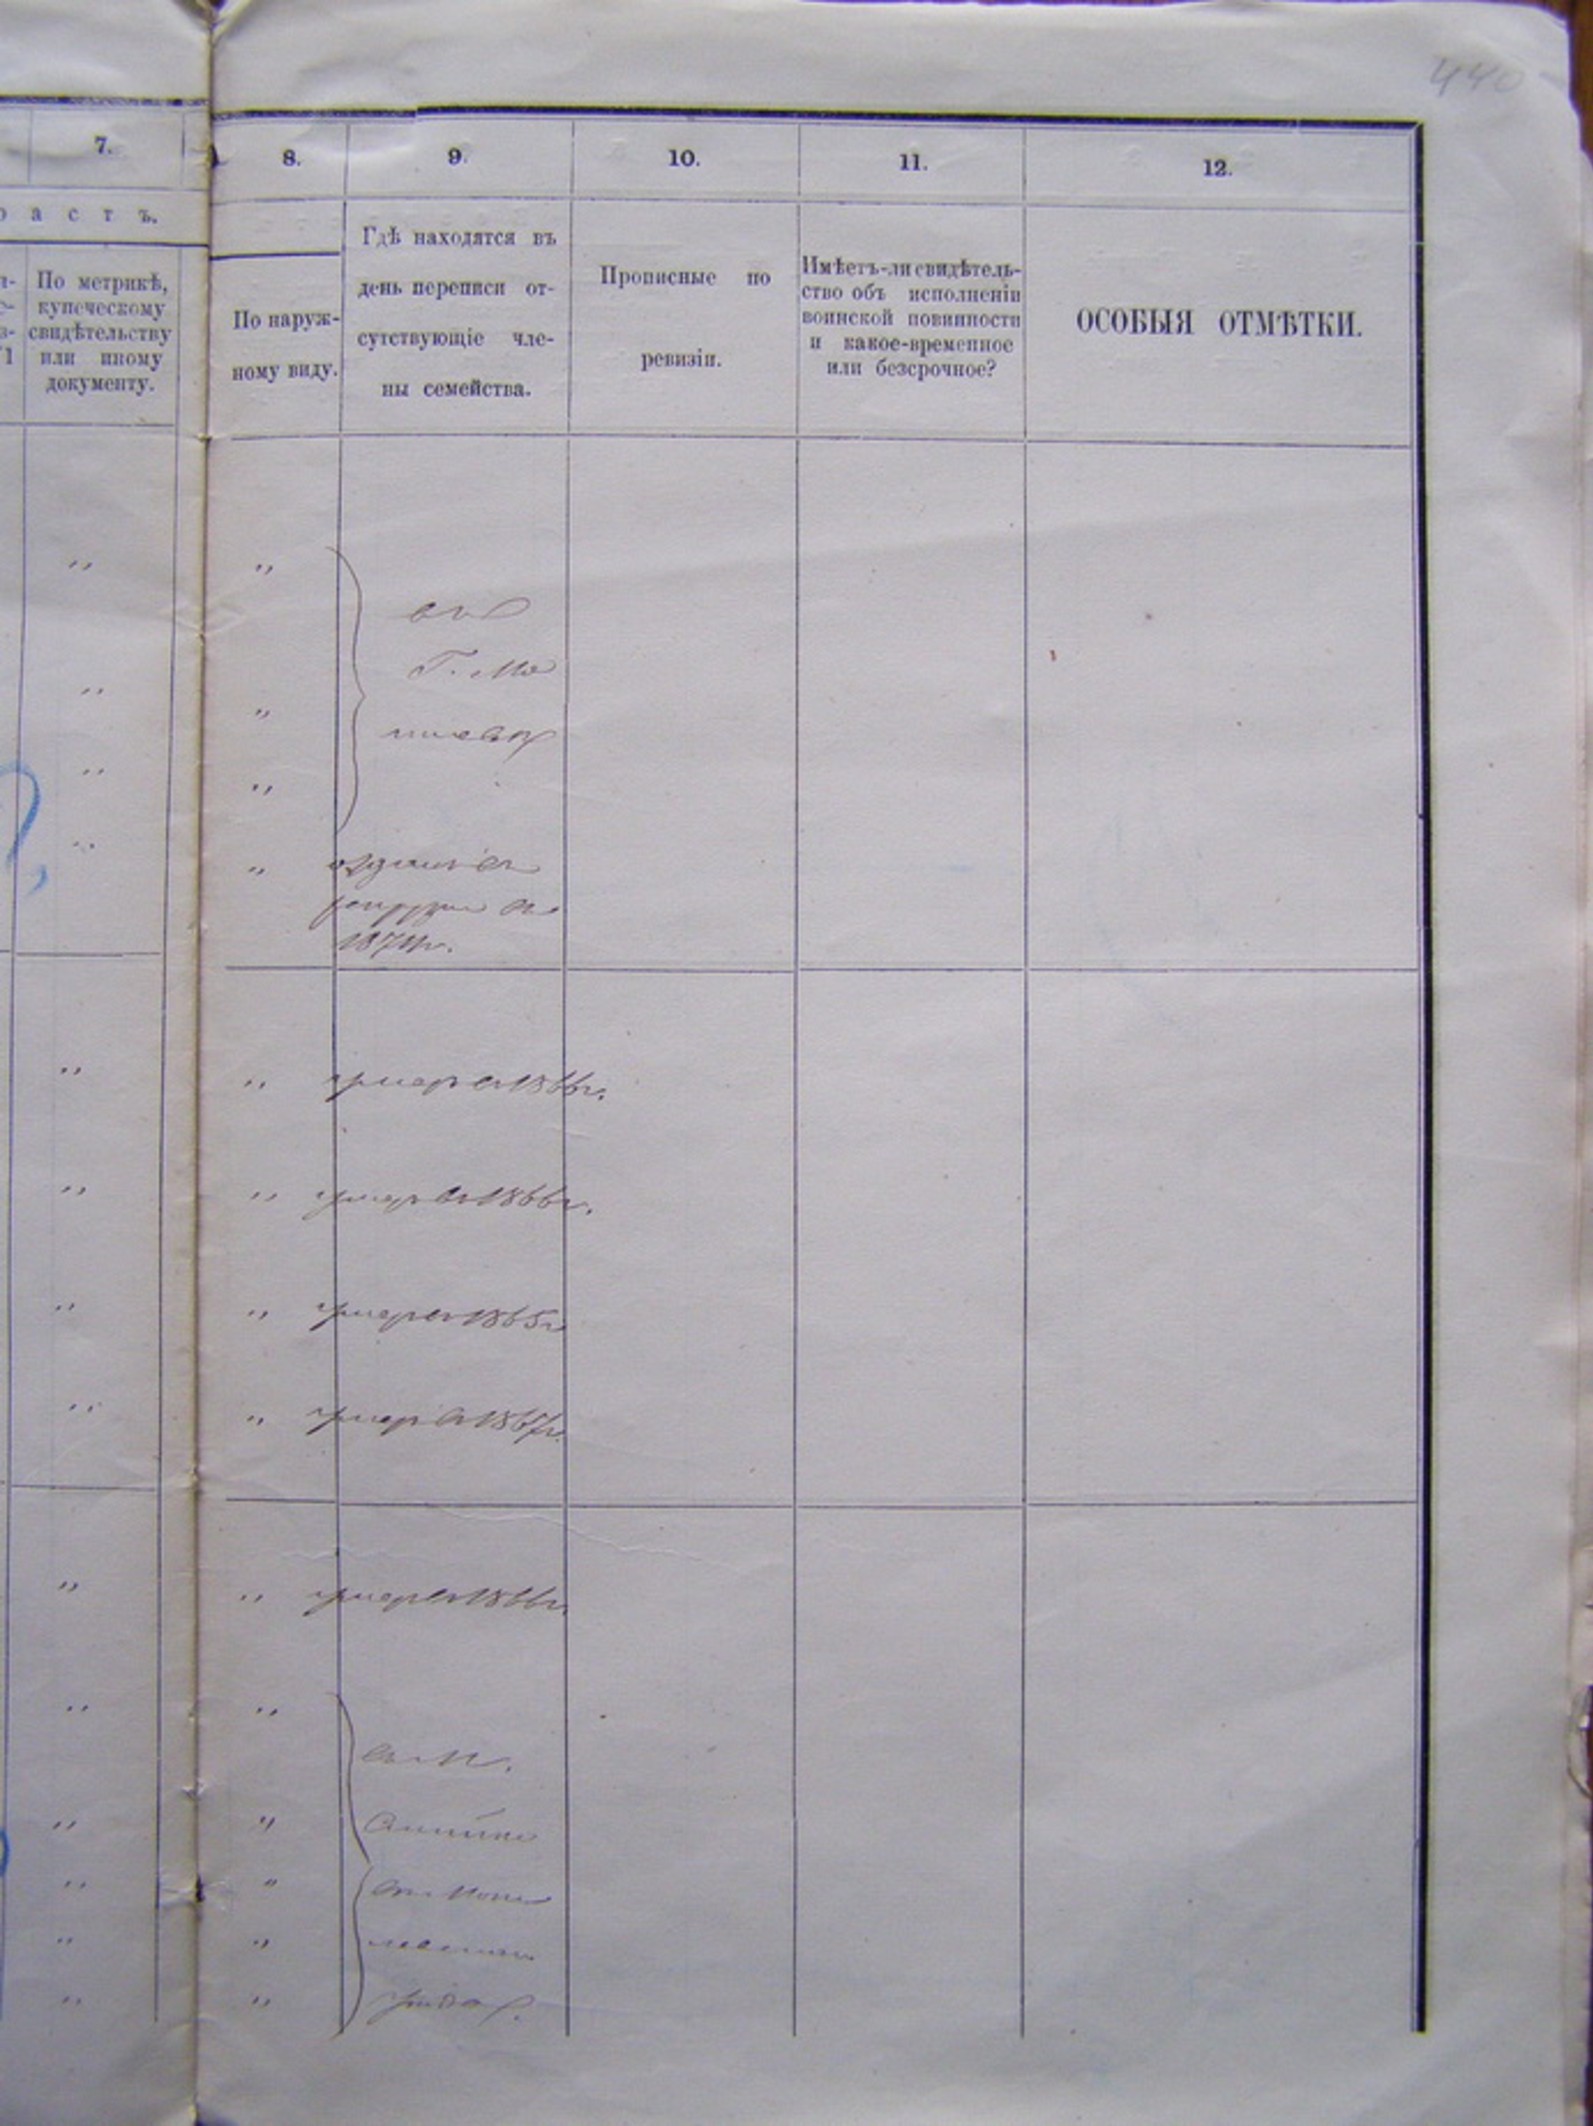 440
7.
8.
9.
10.
11.
12.
р а с т ъ.
По метрикѣ,
купеческому
свидѣтельству
или иному
документу.
По наруж-
ному виду.
Гдѣ находятся въ
день переписи от-
сутствующіе чле-
ны семейства.
Прописные по
ревизіи.
Имѣетъ-ли свидѣтель-
ство объ исполненіи
воинской повинности
и какое-временное
или безсрочное?
ОСОБЫЯ ОТМѢТКИ.
" "
въ
Г. Мо
" "
гилевѣ
" "
" " отданъ въ
рекруты въ
1871г.
" " умеръ въ 1866г.
" " умеръ въ 1866г.
" " умеръ въ 1865г
" " умеръ въ 1867г.
" " умеръ въ 1866г.
" "
въ м.
" "
" "
" "
" "